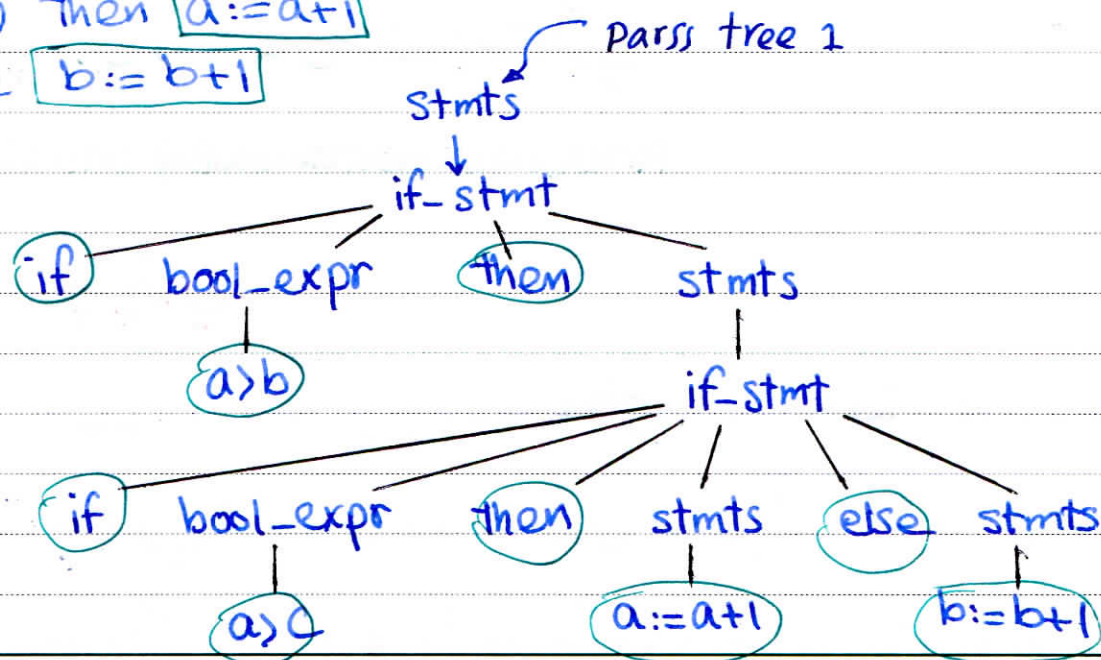 then a:=a+1
b:= b+1
parss tree 1
stmts
if_stmt
if bool_expr then stmts
a>b
if_stmt
if bool_expr then stmts else stmts
a>c a:=a+1 b:=b+1